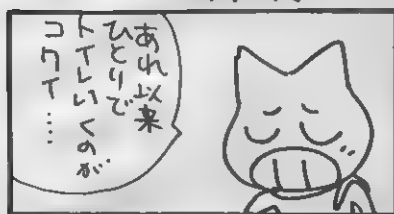 あれ以来
ひとりで
トイレいくのが
コワイ……